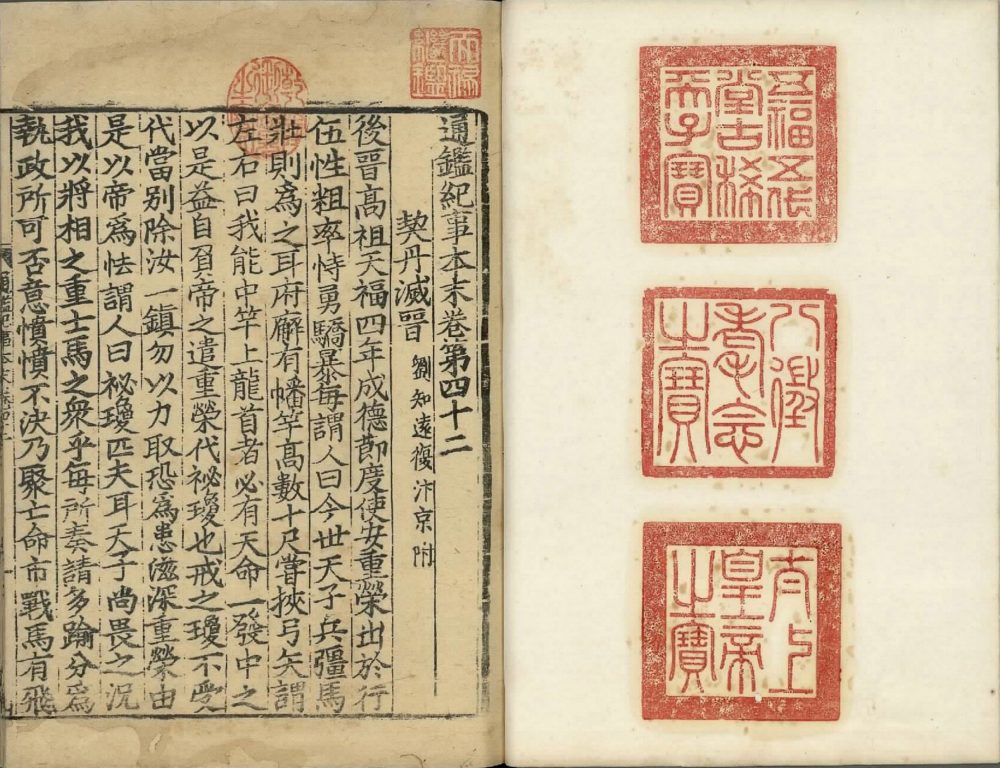 五福五代
堂古稀
天子寶
八徵
耄念
之寶
太上
皇帝
之寶
天祿
繼鑑
乾隆
御覽
之寶
通鑑紀事本末卷第四十二
契丹滅晉 劉知遠復汴京附
後晉高祖天福四年成德節度使安重榮出於行
伍性粗率恃勇驕暴每謂人曰今世天子兵彊馬
壯則爲之耳府廨有幡竿高數十尺嘗挾弓矢謂
左右曰我能中竿上龍首者必有天命一發中之
以是益自負帝之遣重榮代祕瓊也戒之瓊不受
代當別除汝一鎮勿以力取恐爲患滋深重榮由
是以帝爲怯謂人曰祕瓊匹夫耳天子尚畏之況
我以將相之重士馬之衆乎每所奏請多踰分爲
執政所可否意憤憤不決乃聚亡命市戰馬有飛